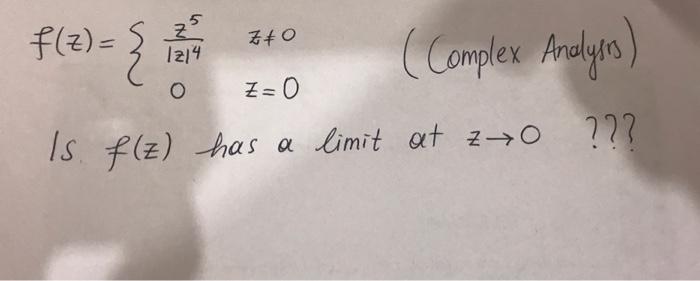 f(z) = { z⁵/|z|⁴ z≠0 (Complex Analysis)
0 z=0
Is f(z) has a limit at z→0 ???